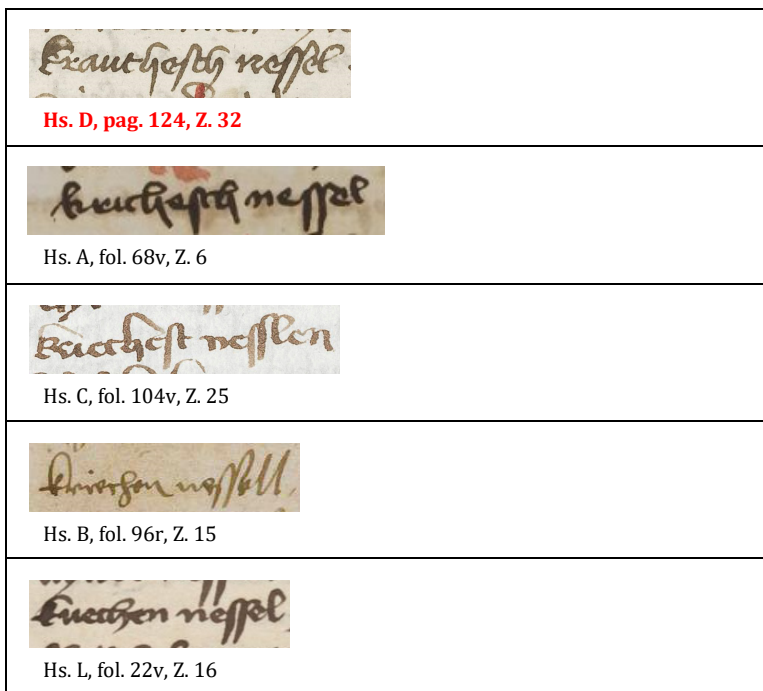 krauthesch nessel
Hs. D, pag. 124, Z. 32
krichesch nessel
Hs. A, fol. 68v, Z. 6
nesslen
Hs. C, fol. 104v, Z. 25
kriechen nessell
Hs. B, fol. 96r, Z. 15
nessel
Hs. L, fol. 22v, Z. 16